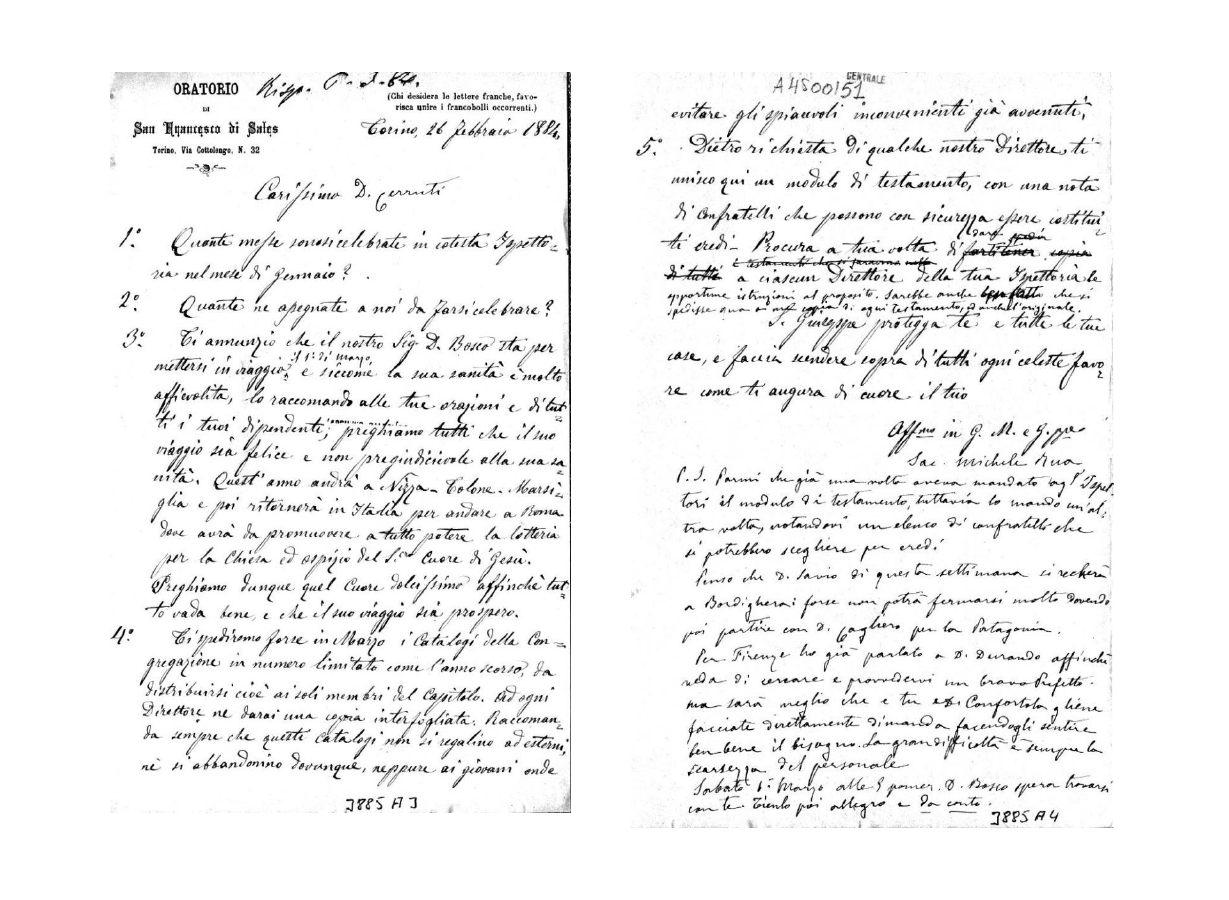 ORATORIO
DI
San Francesco di Sales
Torino, Via Cottolengo, N. 32
Risp.
(Chi desidera le lettere franche, favo-
risca unire i francobolli occorrenti.)
Torino, 26 Febbraio 1884
Carissimo D. Cerruti
1° Quante messe sonosi celebrate in cotesta Ispetto=
ria nel mese di Gennaio?
2° Quante ne assegnate a noi da farsi celebrare?
3° Ti annunzio che il nostro Sig. D. Bosco sta per
il 1° di marzo,
mettersi in viaggio, e siccome la sua sanità è molto
affievolita, lo raccomando alle tue orazioni e di tut=
ti i tuoi dipendenti; preghiamo tutti che il suo
viaggio sia felice e non pregiudicievole alla sua sa=
nità. Quest'anno andrà a Nizza - Tolone - Marsi=
glia e poi ritornerà in Italia per andare a Roma
dove avrà da promuovere a tutto potere la lotteria
per la Chiesa ed ospizio del S. Cuore di Gesù.
Preghiamo dunque quel Cuore dolcissimo affinchè tut=
to vada bene, e che il suo viaggio sia prospero.
4° Ti spediremo forse in Marzo i Catalogi della Con=
gregazione in numero limitato come l'anno scorso, da
distribuirsi cioè ai soli membri del Capitolo. Ad ogni
Direttore ne darai una copia interfogliata. Raccoman=
da sempre che questi Catalogi non si regalino ad esterni,
nè si abbandonino dovunque, neppure ai giovani onde
3885 A 3
CENTRALE
A4500151
evitare gli spiacevoli inconvenienti già avvenuti.
5° Dietro richiesta di qualche nostro Direttore ti
unisco qui un modulo di testamento, con una nota
di Confratelli che possono con sicurezza essere costitui=
ti eredi - Procura a tua volta di
di tutti a ciascun Direttore della tua Ispettoria le
opportune istruzioni al proposito. Sarebbe anche che si
spedisse qua copia di ogni testamento, od anche l'originale.
S. Giuseppe protegga te e tutte le tue
case, e faccia scendere sopra di tutti ogni celeste favo=
re come ti augura di cuore il tuo
Aff.mo in G. M. e G.ppe
Sac. Michele Rua
P. S. Parmi che già una volta aveva mandato agl' Ispet=
tori il modulo di testamento, tuttavia lo mando un'al=
tra volta, notandovi un elenco di confratelli che
si potrebbero scegliere per eredi
Penso che D. Savio di questa settimana si recherà
a Bordighera; forse non potrà fermarsi molto dovendo
poi partire con D. Cagliero per la Patagonia.
Per Firenze ho già parlato a D. Durando affinchè
veda di cercare e provvedervi un bravo Prefetto.
ma sarà meglio che e tu e D. Confortola gliene
facciate direttamente dimanda facendogli sentire
ben bene il bisogno. La gran difficoltà è sempre la
scarsezza del personale
Sabato 1° Marzo alle 5 pomer. D. Bosco spera trovarsi
con te. Tienlo poi allegro e da conto.
3885 A 4